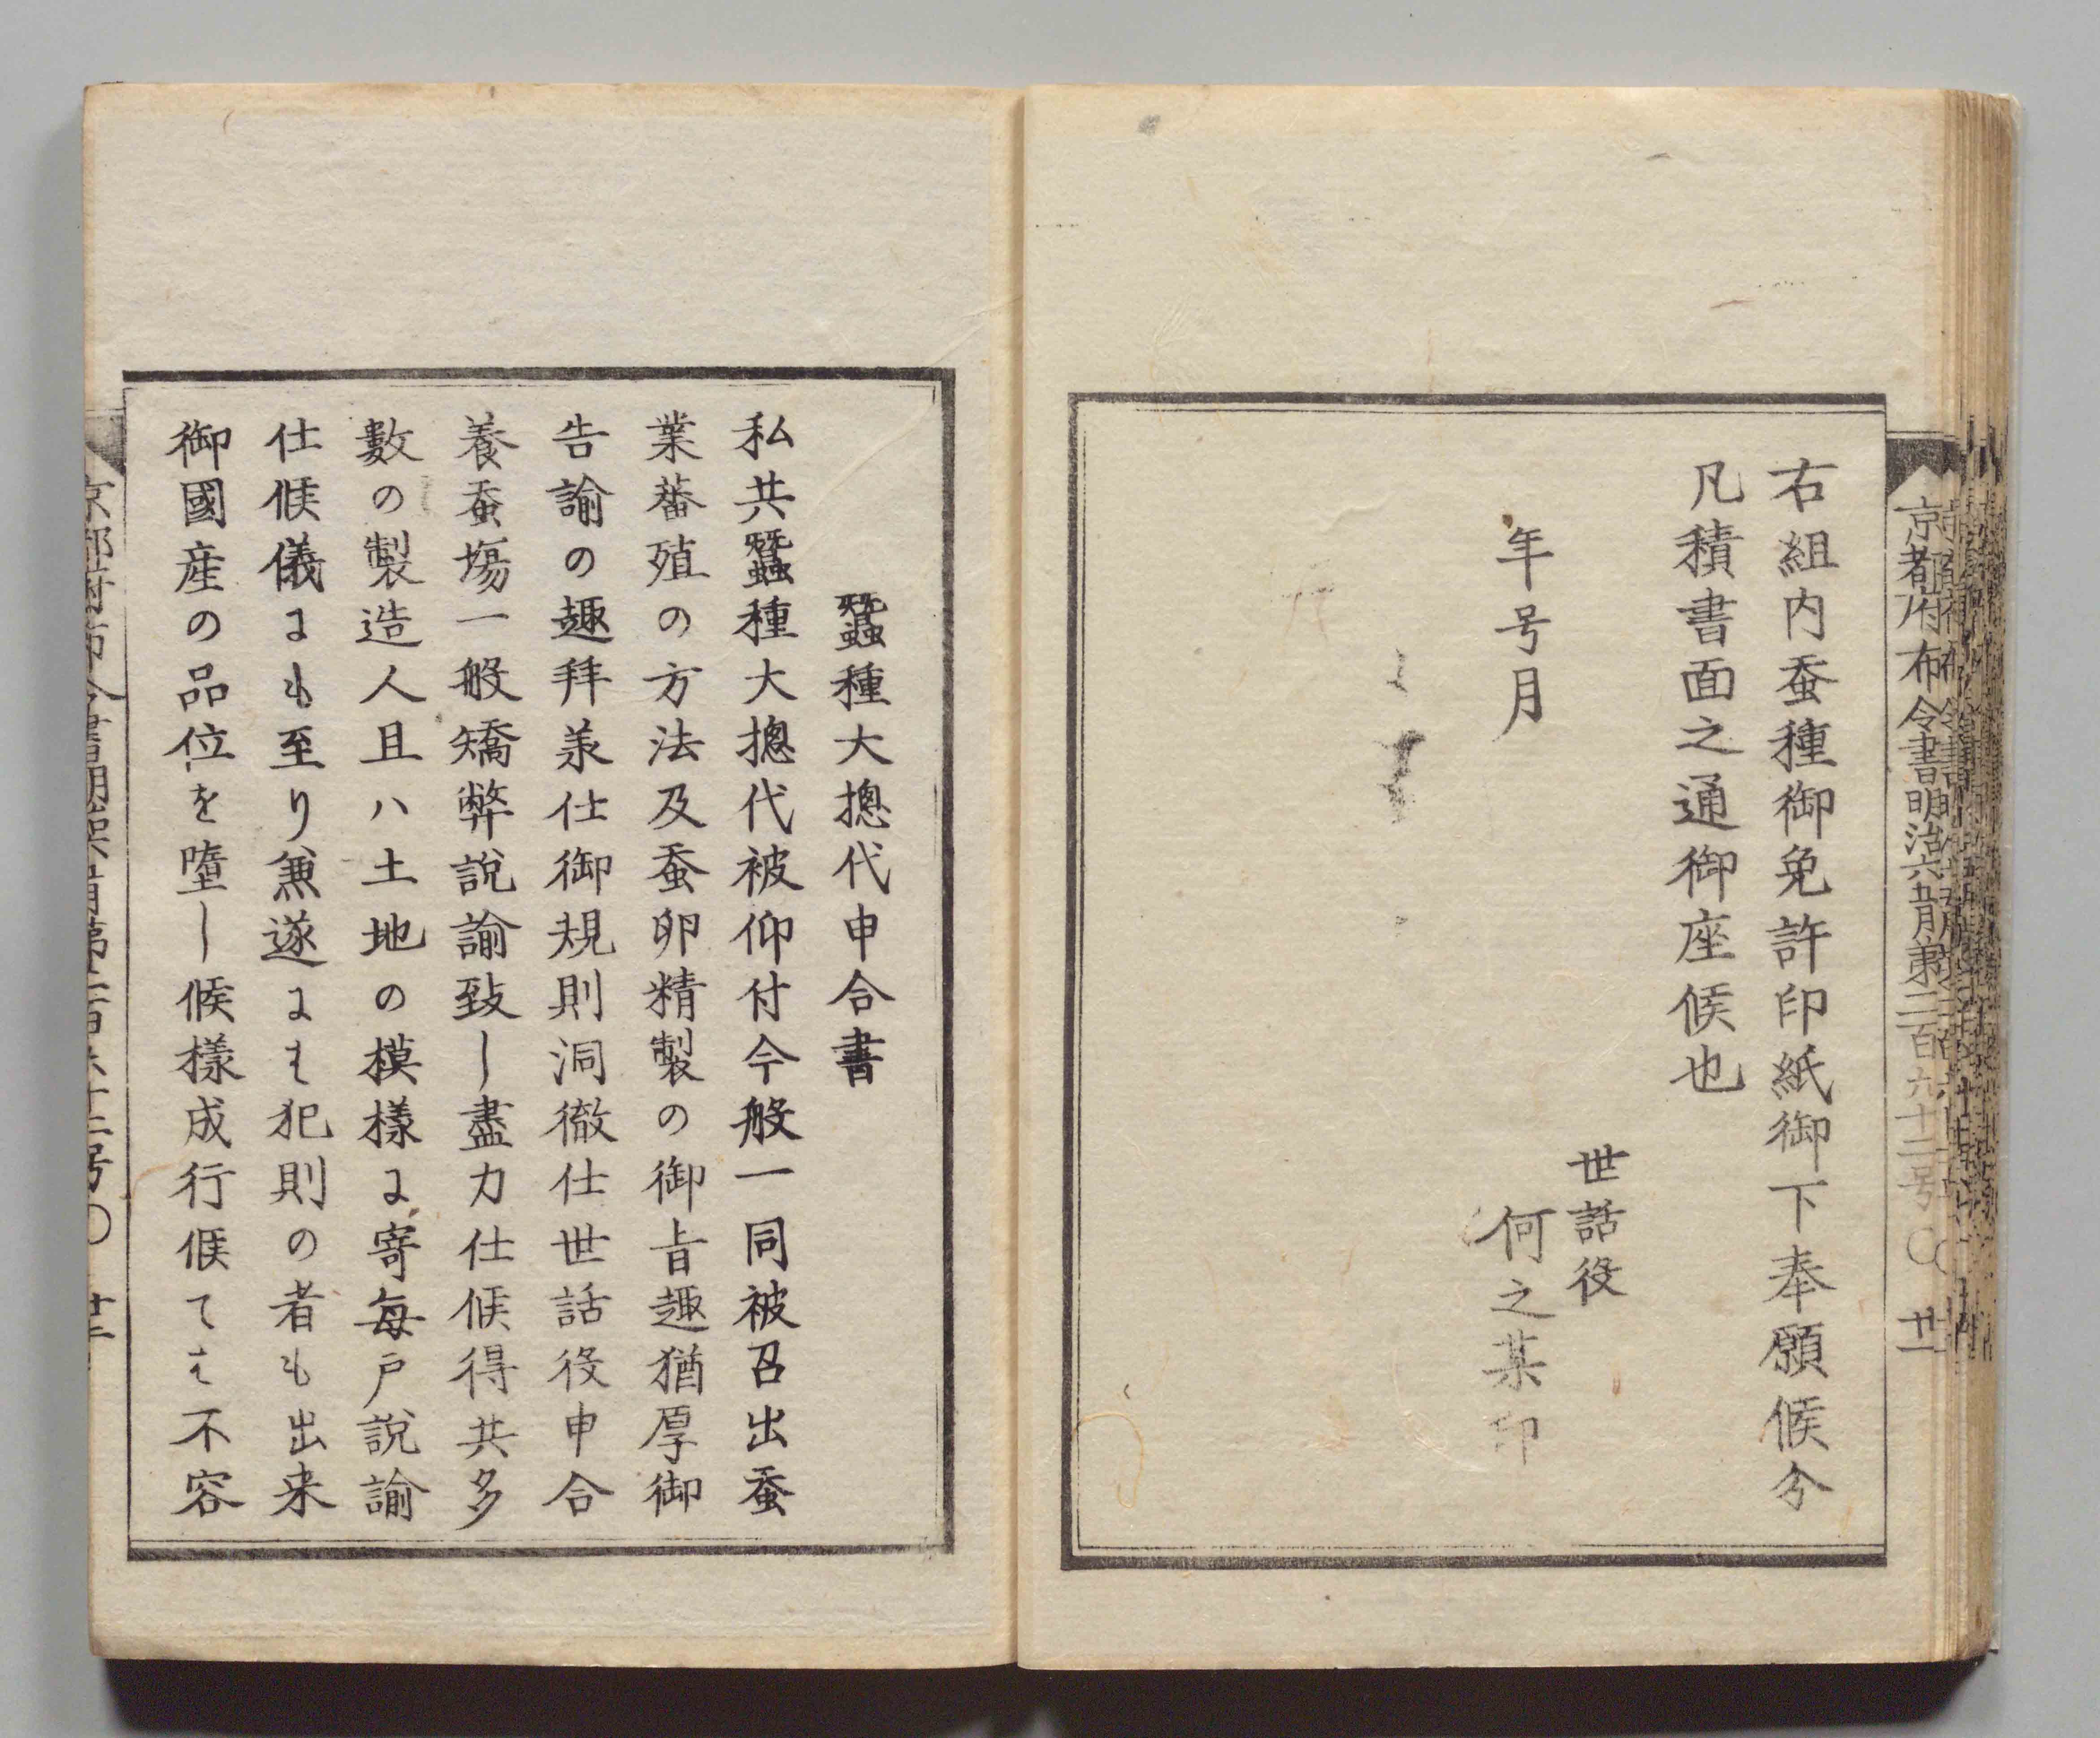 京都府布令書明治六年五月第二百九十二号〇 廿一
右組内蚕種御免許印紙御下奉願候分
凡積書面之通御座候也
世話役
年号月
何之某印
蠶種大摠代申合書
私共蠶種大摠代被仰付今般一同被召出蚕
業蕃殖の方法及蚕卵精製の御旨趣猶厚御
告諭の趣拜羕仕御規則洞徹仕世話役申合
養蚕塲一般矯弊説諭致し盡力仕候得共多
數の製造人且ハ土地の模樣に寄毎戸説諭
仕候儀にも至り兼遂には犯則の者も出来
御國産の品位を墮し候樣成行候ては不容